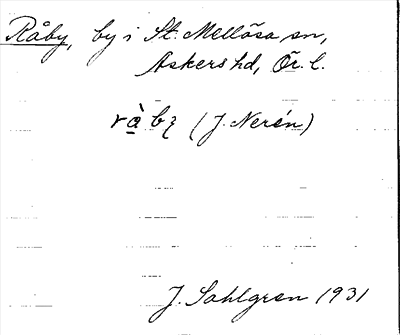 Råby, by i St. Mellösa sn,
Askers hd, Ör. l.
rà̱bꝫ (J. Nerén)
J. Sahlgren 1931